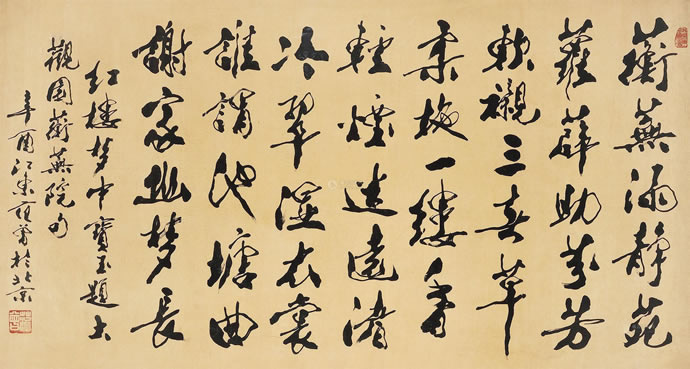 蘅蕪滿靜苑
蘿薜助芬芳
軟襯三春草
柔拖一縷香
輕煙迷遠渚
冷翠濕衣裳
誰謂池塘曲
謝家幽梦長
红樓梦中寶玉題大
觀園蘅蕪院句
辛酉江東范曾於北京